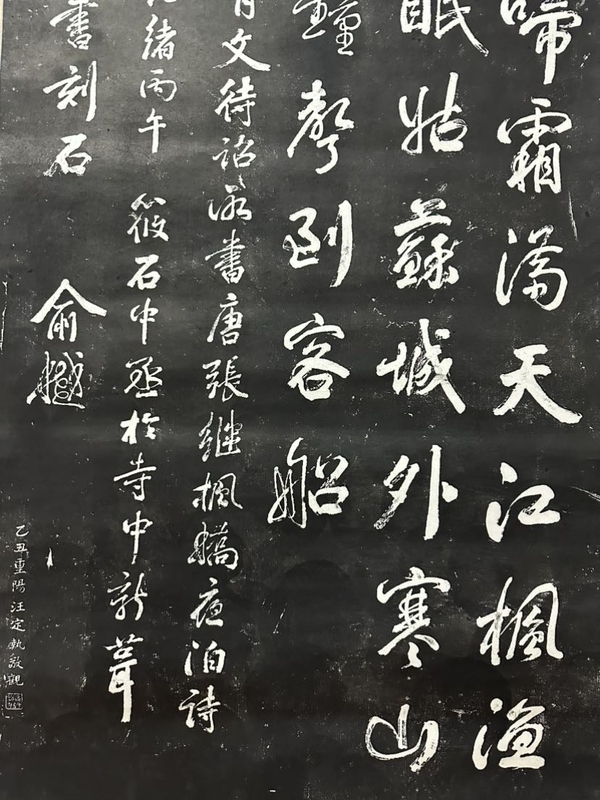 啼霜滿天江楓漁
眠姑蘇城外寒山
鐘聲到客船
有文待詔所書唐張繼楓橋夜泊詩
緒丙午筱石中丞於寺中新葺
書刻石
俞樾
乙丑重陽汪定執敬觀